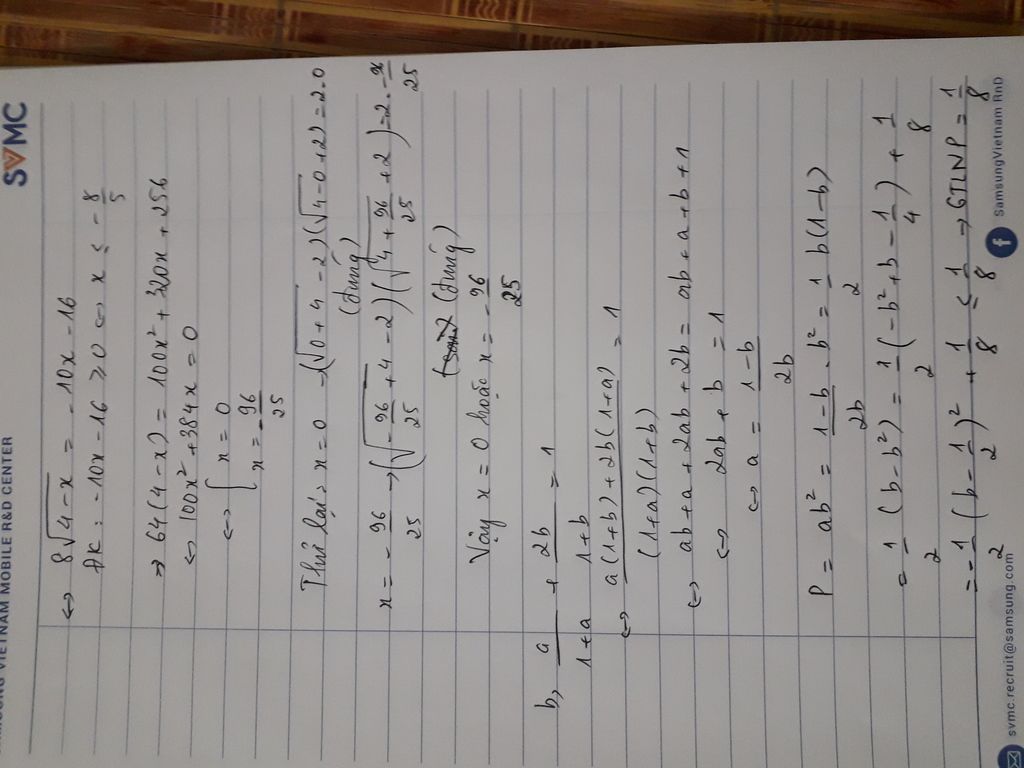 SAMSUNG VIETNAM MOBILE R&D CENTER
SVMC
⇔ 8√(4-x) = -10x-16
ĐK: -10x-16 ≥ 0 ⇔ x ≤ -8/5
⇒ 64(4-x) = 100x² + 320x + 256
⇔ 100x² + 384x = 0
⇔ { x = 0
x = -96/25
Thử lại: x = 0 → (√(0+4) - 2)(√(4-0) + 2) = 2.0
(đúng)
x = -96/25 → (√(-96/25 + 4) - 2)(√(4 + 96/25) + 2) = 2.-96/25
(đúng)
Vậy x = 0 hoặc x = -96/25
b, a/(1+a) + 2b/(1+b) = 1
⇔ (a(1+b) + 2b(1+a))/((1+a)(1+b)) = 1
⇔ ab + a + 2ab + 2b = ab + a + b + 1
⇔ 2ab + b = 1
⇔ a = (1-b)/2b
P = ab² = (1-b)/2b . b² = 1/2 b(1-b)
= 1/2 (b-b²) = 1/2 (-b² + b - 1/4) + 1/8
= -1/2 (b - 1/2)² + 1/8 ≤ 1/8 → GTLNP = 1/8
svmc.recruit@samsung.com
samsungVietnam RnD